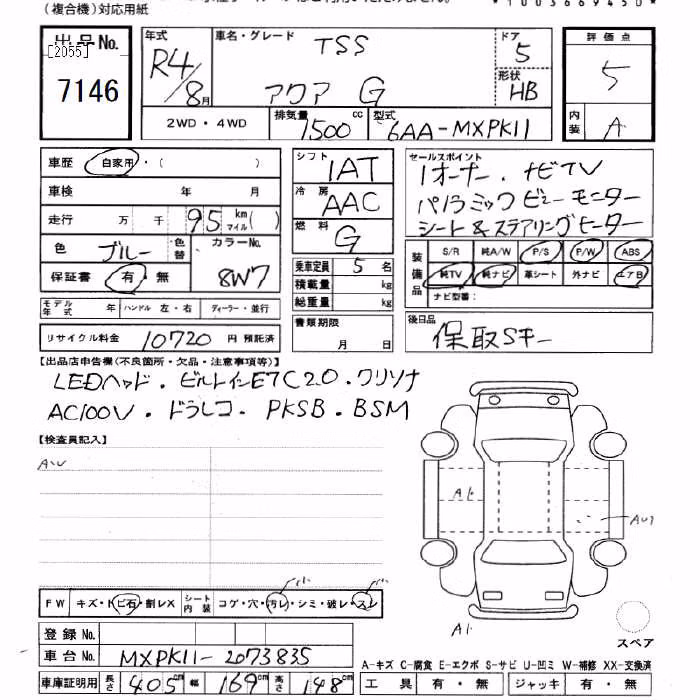 (複合機)対応用紙
*1003669450*
出品No. [2055] 7146
年式 R4/8月
車名・グレード TSS アクア G
ドア 5
形状 HB
評価点 5
内装 A
2WD・4WD
排気量 1500 cc
型式 6AA-MXPK11
車歴 自家用・( )
車検 年 月
走行 万 千 95 km マイル( )
色 ブルー 色替 カラーNo. 8W7
保証書 有・無
モデル年式 年 ハンドル 左・右 ディーラー・並行
リサイクル料金 10720 円 預託済
シフト IAT
冷房 AAC
燃料 G
乗車定員 5 名
積載量 kg
総重量 kg
書類期限 月 日
セールスポイント
1オーナー.ナビTV
パノラミックビューモニター
シート&ステアリングヒーター
装備品 S/R 純A/W P/S P/W ABS
純TV 純ナビ 革シート 外ナビ エアB
ナビ型番:
後日品 保取Sキー
【出品店申告欄(不良箇所・欠品・注意事項等)】
LEDヘッド.ビルトインETC2.0.クリソナ
AC100V.ドラレコ.PKSB.BSM
【検査員記入】
A・U
A1
AU1
A1
FW キズ・トビ石・割レX シート内装 コゲ・穴・汚レ・シミ・破レ・スレ
小 小
スペア
登録No.
車台No. MXPK11-2073835
車庫証明用 長さ 405cm 幅 169cm 高さ 148cm
A-キズ C-腐食 E-エクボ S-サビ U-凹ミ W-補修 XX-交換済
工具 有・無 ジャッキ 有・無